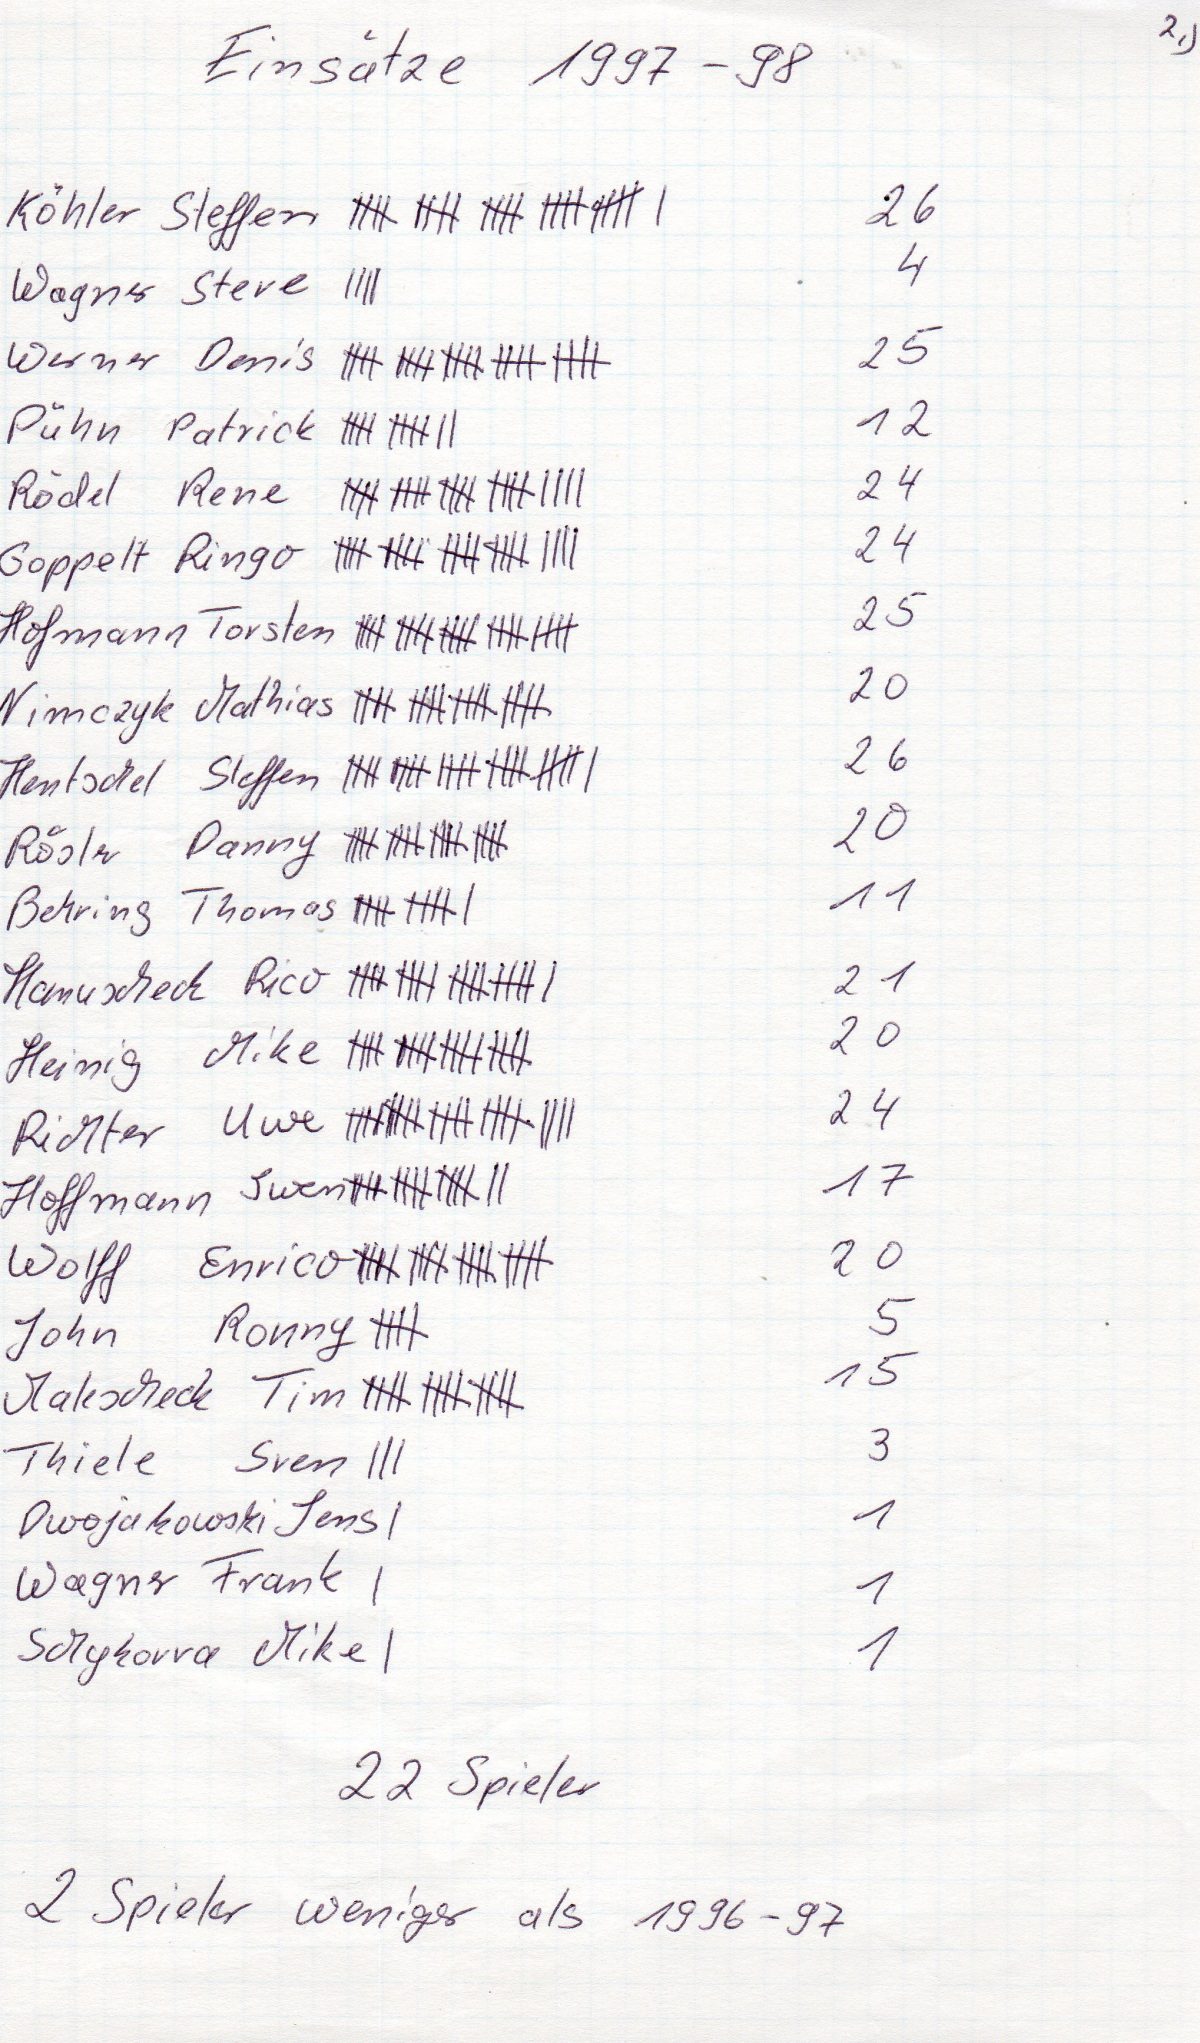 2.)
Einsätze 1997-98
Köhler Steffen 𝍸 𝍸 𝍸 𝍸 𝍸 | 26
Wagner Steve |||| 4
Werner Denis 𝍸 𝍸 𝍸 𝍸 𝍸 25
Pühn Patrick 𝍸 𝍸 || 12
Rödel Rene 𝍸 𝍸 𝍸 𝍸 |||| 24
Goppelt Ringo 𝍸 𝍸 𝍸 𝍸 |||| 24
Hofmann Torsten 𝍸 𝍸 𝍸 𝍸 𝍸 25
Nimczyk Mathias 𝍸 𝍸 𝍸 𝍸 20
Hentschel Steffen 𝍸 𝍸 𝍸 𝍸 𝍸 | 26
Rösler Danny 𝍸 𝍸 𝍸 𝍸 20
Behring Thomas 𝍸 𝍸 | 11
Hanuscheck Rico 𝍸 𝍸 𝍸 𝍸 | 21
Heinig Mike 𝍸 𝍸 𝍸 𝍸 20
Richter Uwe 𝍸 𝍸 𝍸 𝍸 |||| 24
Hoffmann Swen 𝍸 𝍸 𝍸 || 17
Wolff Enrico 𝍸 𝍸 𝍸 𝍸 20
John Ronny 𝍸 5
Makscheck Tim 𝍸 𝍸 𝍸 15
Thiele Sven ||| 3
Dwojakowski Jens | 1
Wagner Frank | 1
Schykorra Mike | 1
22 Spieler
2 Spieler weniger als 1996-97